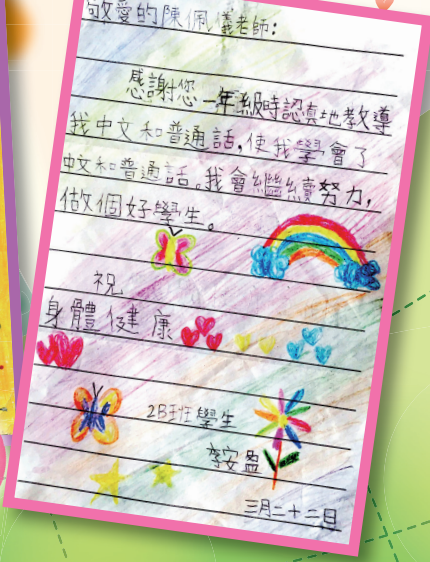 敬愛的陳佩儀老師：
感謝您一年級時認真地教導
我中文和普通話，使我學會了
中文和普通話。我會繼續努力，
做個好學生。
祝
身體健康
2B班學生
李安盈
三月二十二日